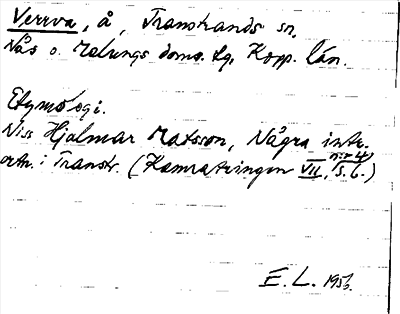 Verrva, å, Transtrands sn.
Nås o. Malungs doms. tg. Kopp. län.
Etymologi.
Niss Hjalmar Matsson, Några intr.
ortn. i Transtr. (Kamratringen VII, nr 4, s. 6.)
E. L. 1956.